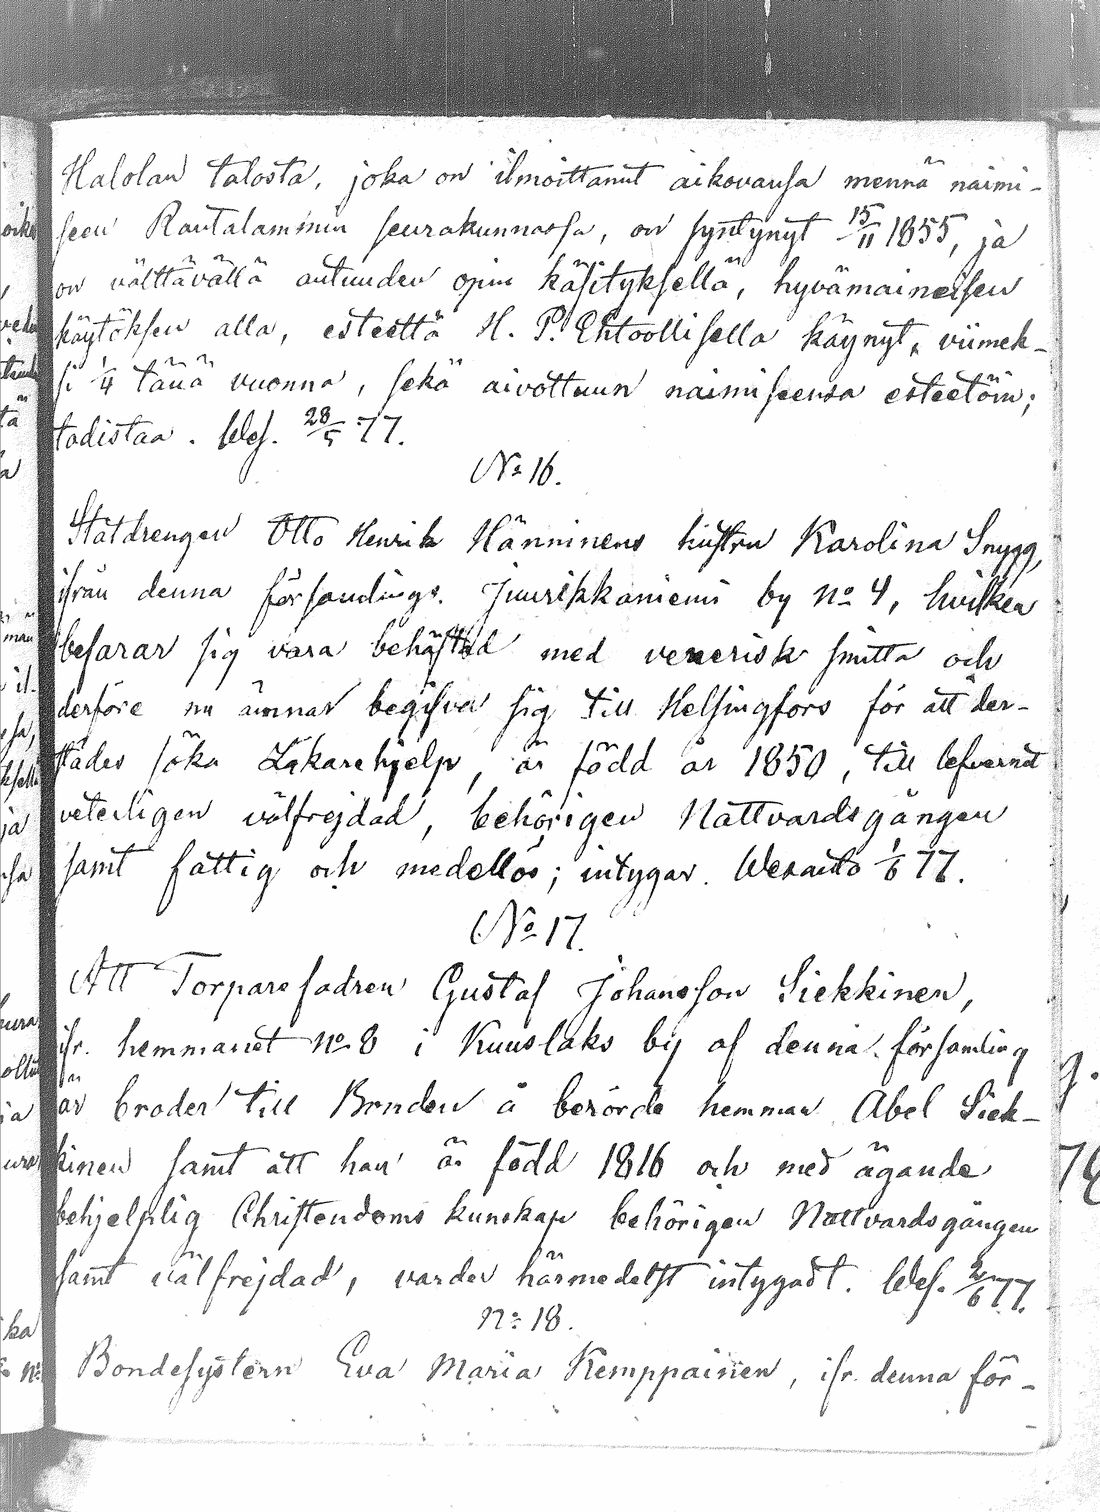 Halolan talosta, joka on ilmoittanut aikovansa mennä naimi-
seen Rautalammin seurakunnassa, on syntynyt 15/11 1855, ja
on välttävällä autuuden opin käsityksellä, hyvämaineisen
käytöksen alla, esteettä H. P. Ehtoollisella käynyt, viimek-
si 1/4 tänä vuonna, sekä aivottuun naimiseensa esteetöin;
todistaa. Wes. 28/5 77.
No 16.
Statdrengen Otto Henrik Hänninens hustru Karolina Snygg,
ifrån denna församlings Juurikkaniemi by no 4, hvilken
befarar sig vara behäftad med venerisk smitta och
derföre nu ämnar begifva sig till Helsingfors för att der-
städes söka Läkarehjelp, är född år 1850, till lefvernet
veterligen välfrejdad, behörigen Nattvardsgången
samt fattig och medellös; intygar. Wesanto 1/6 77.
No 17.
Att Torparefadren Gustaf Johansson Siekkinen,
ifr. hemmanet no 8 i Kuuslaks by af denna församling
är broder till Bonden å berörde hemman Abel Siek-
kinen samt att han är född 1816 och med ägande
behjelplig Christendoms kunskap behörigen Nattvardsgången
samt välfrejdad, varder härmedelst intygadt. Wes. 2/6 77.
no 18.
Bondesystern Eva Maria Kemppainen, ifr. denna för-